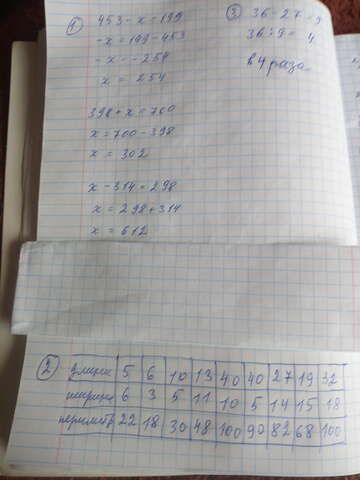 ① 453 - x = 199
- x = 199 - 453
- x = - 254
x = 254
398 + x = 700
x = 700 - 398
x = 302
x - 314 = 298
x = 298 + 314
x = 612
③ 36 - 27 = 9
36 : 9 = 4
в 4 раза
② длина 5 6 10 13 40 40 27 19 32
ширина 6 3 5 11 10 5 14 15 18
периметр 22 18 30 48 100 90 82 68 100